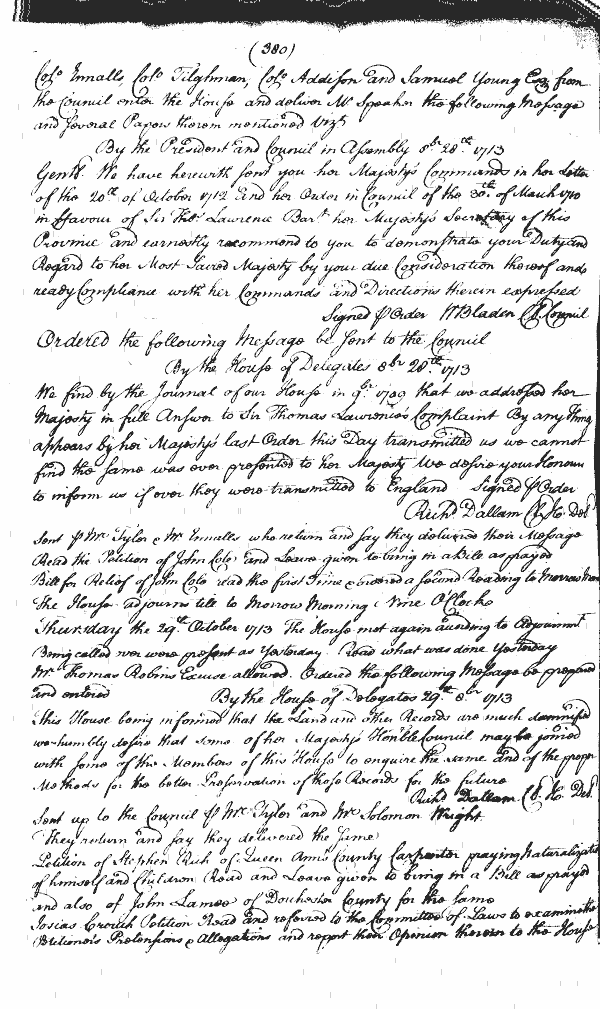 (380)
Colo. Ennalls, Colo. Tilghman, Colo. Addison and Samuel Young Esq from
the Council enter the House and deliver Mr Speaker the following Message
and several Papers therein mentioned Vizt
By the President and Council in Assembly 8br 28th 1713
Gentn. We have herewith sent you her Majesty's Commands in her Letter
of the 20th of October 1712 and her Order in Council of the 30th of March 1710
in ffavour of Sir Thos Lawrence Bart. her Majesty's Secretary of this
Province and earnestly recommend to you to demonstrate your Duty and
Regard to her Most Sacred Majesty by your due Consideration thereof and
ready Complyance with her Commands and Directions therein expressed
Signed p Order W Bladen Cl Council
Ordered the following Message be sent to the Council
By the House of Delegates 8br 28th 1713
We find by the Journal of our House in 9br 1709 that we addressed her
Majesty in full Answer to Sir Thomas Lawrence's Complaint By any thing
appears by her Majesty's last Order this Day transmitted us we cannot
find the same was ever presented to her Majesty We desire your Honours
to inform us if ever they were transmitted to England Signed p Order
Richd Dallam Cl. Ho. Del
Sent p Mr Tyler & Mr Ennalls who return and say they delivered their Message
Read the Petition of John Cole and Leave given to bring in a Bill as prayed
Bill for Relief of John Cole read the first Time & ordered a second Reading to Morrow
The House adjourns till to Morrow Morning Nine O'Clock
Thursday the 29th October 1713 The House met again according to Adjournmt
Being called over were present as Yesterday. Read what was done Yesterday
Mr. Thomas Robins Excuse allowed. Ordered the following Message be prepared
and entered By the House of Delegates 29th 8br 1713
This House being informed that the Land and other Records are much damnified
we humbly desire that some of her Majesty's Honble Council may be joined
with some of the Members of this House to enquire the same and of the proper
Methods for the better Preservation of those Records for the future
Richd Dallam Cl. Ho. Del.
Sent up to the Council p Mr. Tyler and Mr Solomon Wright
They return and say they delivered the same
Petition of Stephen Rich of Queen Ann's County Carpenter praying Naturalization
of himself and Children Read and Leave given to bring in a Bill as prayed
and also of John Lamee of Dorchester County for the same
Josias Crouch Petition Read and referred to the Committee of Laws to examine the
Petitioner's Pretensions & Allegations and report their Opinion therein to the House